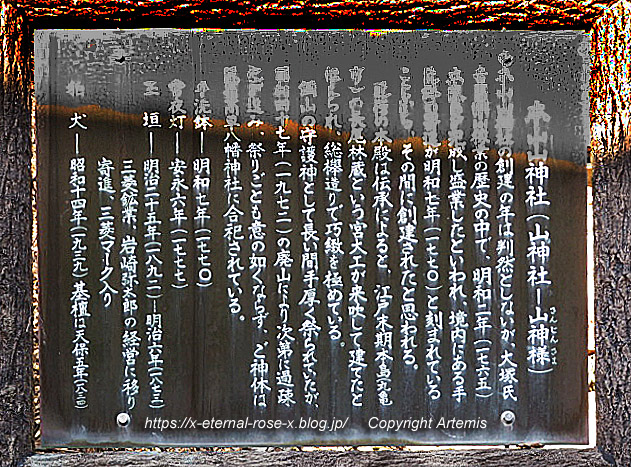 本山神社(山神社ー山神様)
さんじんさま
の創建の年は判然としないが、大塚氏
の歴史の中で、明和二年(一七六五)
盛業したといわれ、境内にある手
が明和七年(一七七〇)と刻まれている
その間に創建されたと思われる。
の本殿は伝承によると、江戸末期本島丸亀
林蔵という宮大工が来吹して建てたと
られ、総欅造りで巧緻を極めている。
銅山の守護神として長い間手厚く祭られていたが、
昭和四十七年(一九七二)の廃山により次第に過疎
進み、祭りごとも意の如くならず、ご神体は
八幡神社に合祀されている。
手洗鉢ー明和七年(一七七〇)
常夜灯ー安永六年(一七七七)
玉垣ー明治二十五年(一八九二)ー明治六年(一八七三)
三菱鉱業、岩崎弥太郎の経営に移り
寄進、三菱マーク入り
狛犬ー昭和十四年(一九三九)基壇は天保五年(一八三四)
https://x-eternal-rose-x.blog.jp/ Copyright Artemis